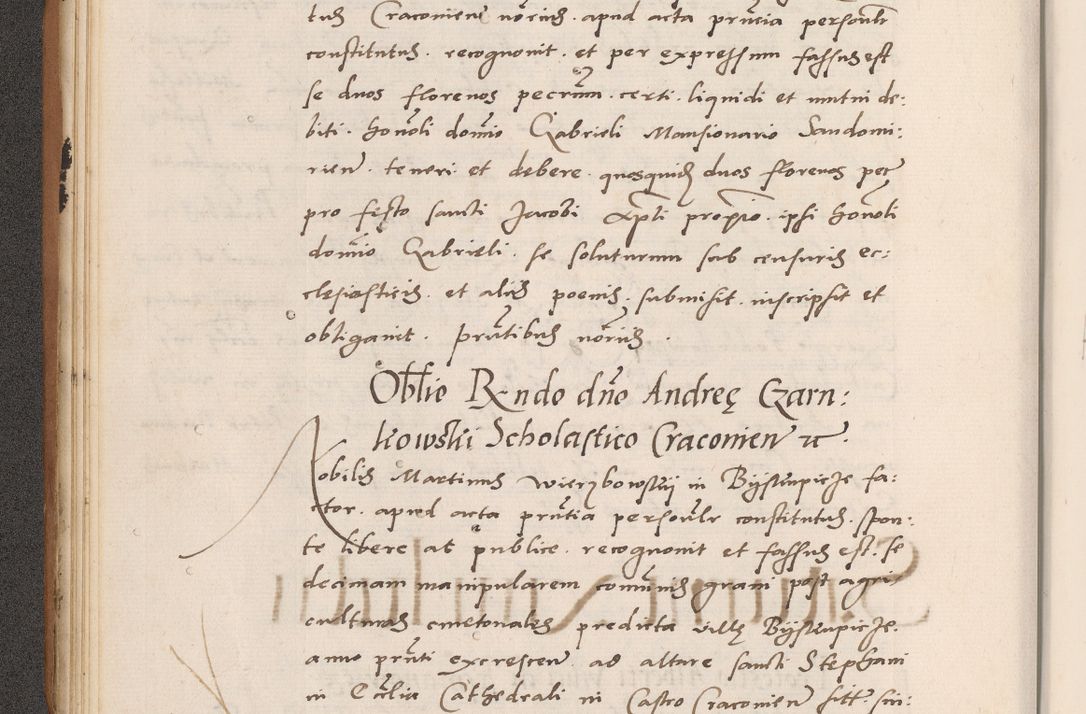 tus Craconien notarius. apud acta pñcia personlr
constitutus. recognovit. et per expressum fassus est
se duos florenos pecũm. certi. liquidi et mutui de:
biti. honoli domĩo Gabrieli Mansionario Sandomi:
rien. teneri et debere. quosquid duos florenos pec
pro festo sancti Jacobi Apli proxĩo. ipsi honoli
domĩo Gabrieli. se soluturum sub censuris ec:
clesiasticis. et aliis poenis. submisit. inscripsit et
obligavit. pñtibus
Oblio Rndo dño Andreę Czarn:
kowski Scholastico Craconien etc.
Nobilis Martinus Wierzbowskij in Bijskupicze fa:
ctor. apud acta pñtia personlr constitutus. spon:
te libere ac publice. recognovit et fassus est. se
decimam manipularem comũnis grani post agri
culturas cmetonales predicta villę Bijskupicze.
anno pñti excrescen ad altare sancti Stephani
in Ecclia Cathedrali in Castro Craconien sitt.